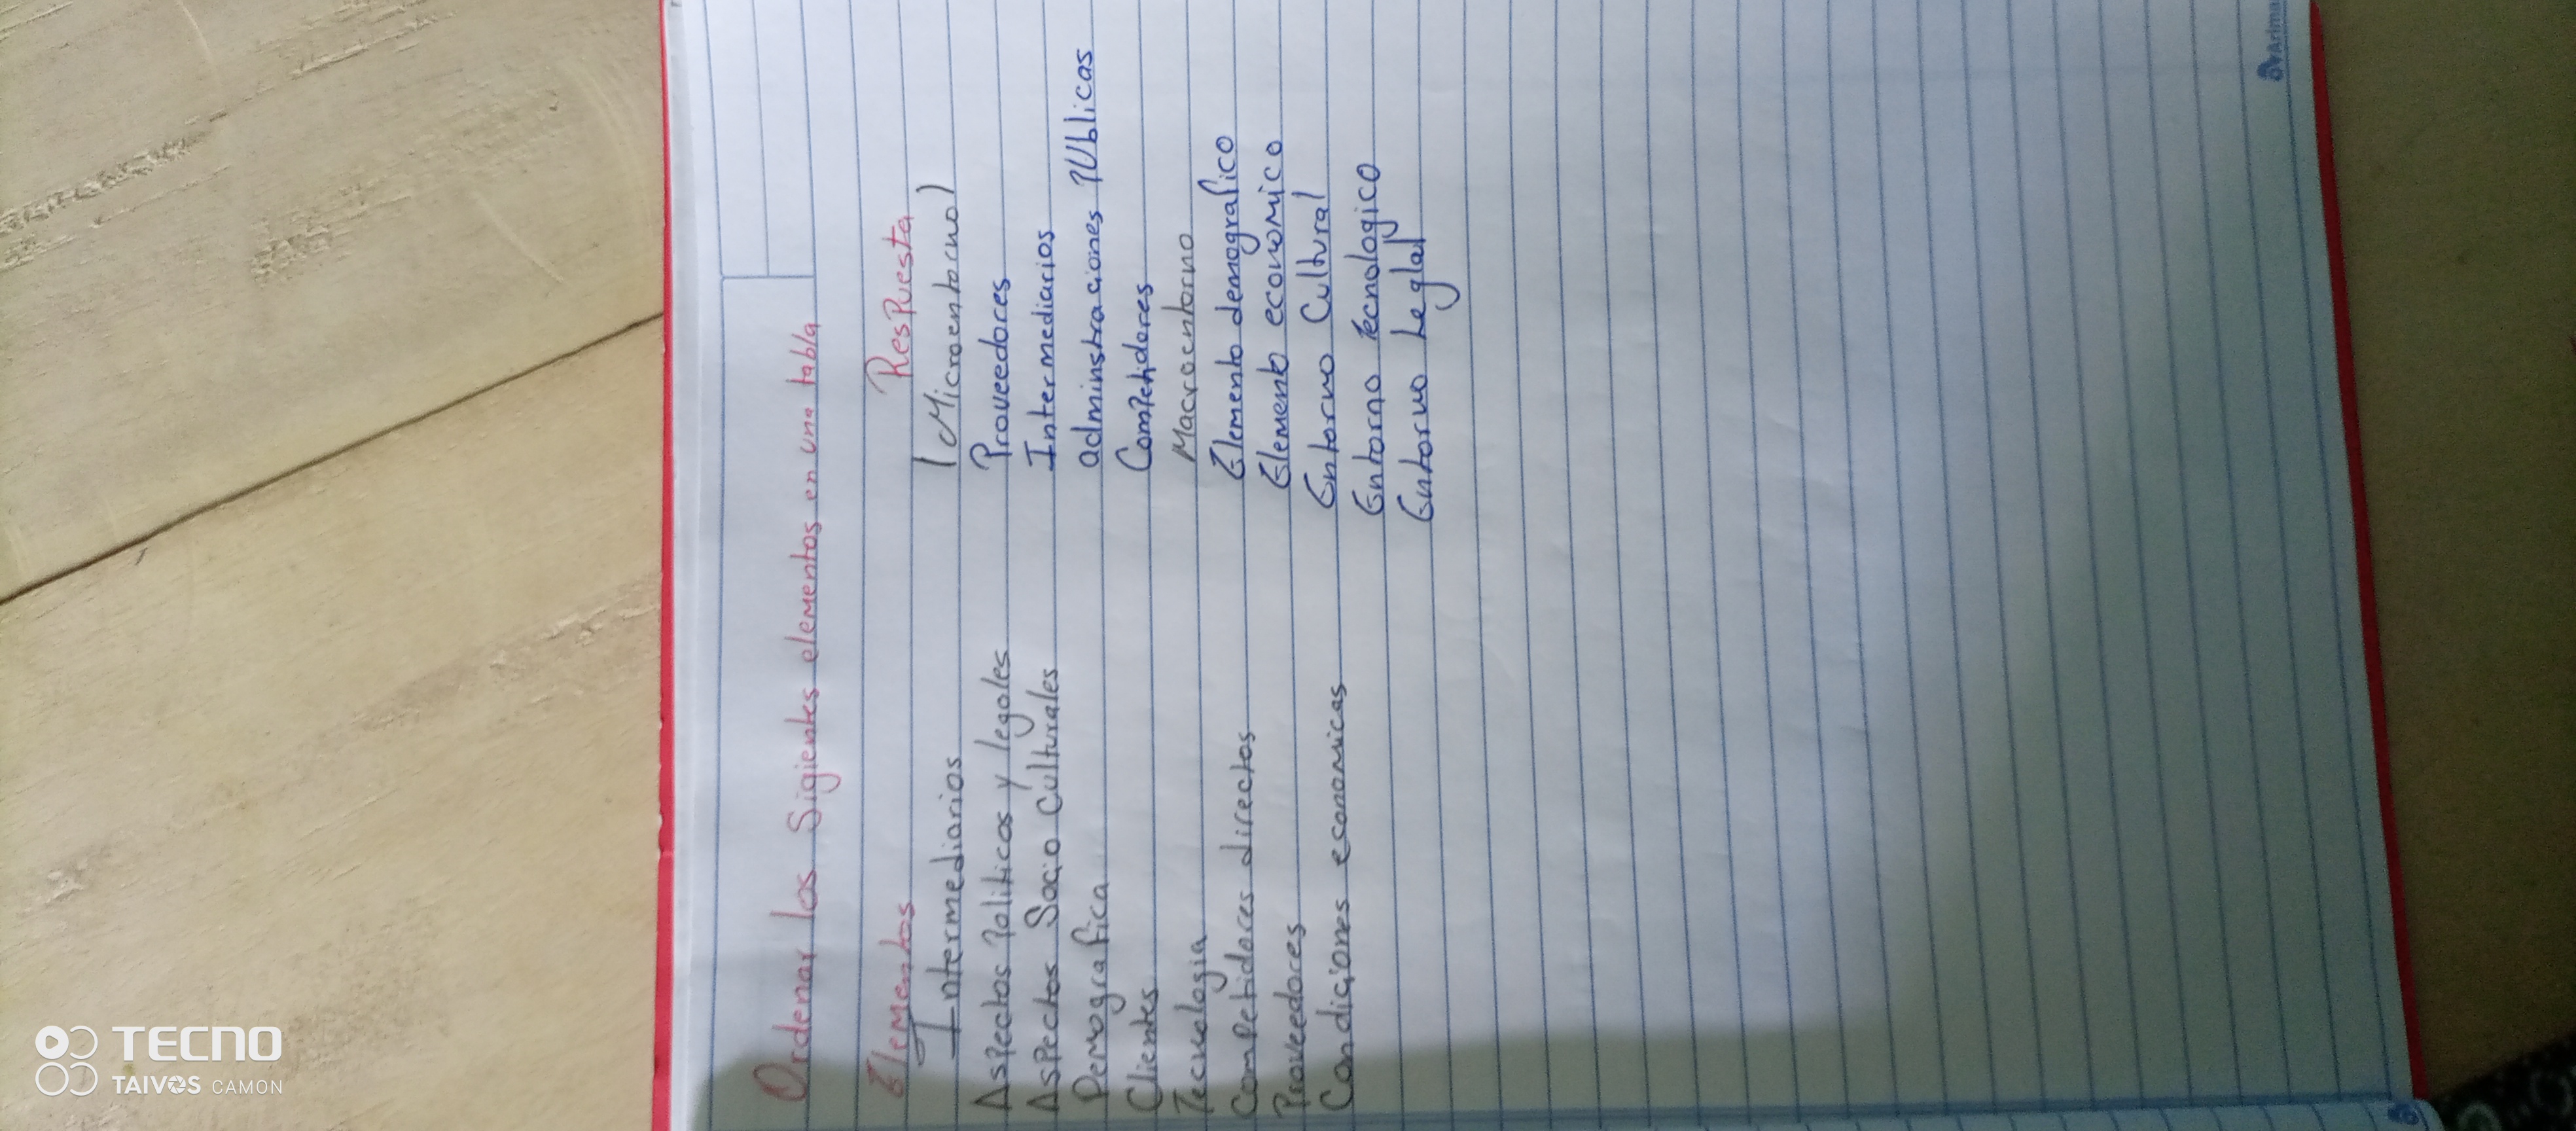 Ordenar los Sigientes elementos en una tabla
Elementos
Intermediarios
Aspectos Politicos y legales
Aspectos Socio Culturales
Demografica
Clientes
Tecnologia
Competidores directos
Proveedores
Condiciones economicas
Respuesta
(Microentorno)
Proveedores
Intermediarios
adminstraciones PUblicas
Competidores
Macroentorno
Elemento demografico
Elemento economico
Entorno Cultural
Entorno Tecnologico
Entorno Leglal
Arimany
TECNO
TAIVOS CAMON